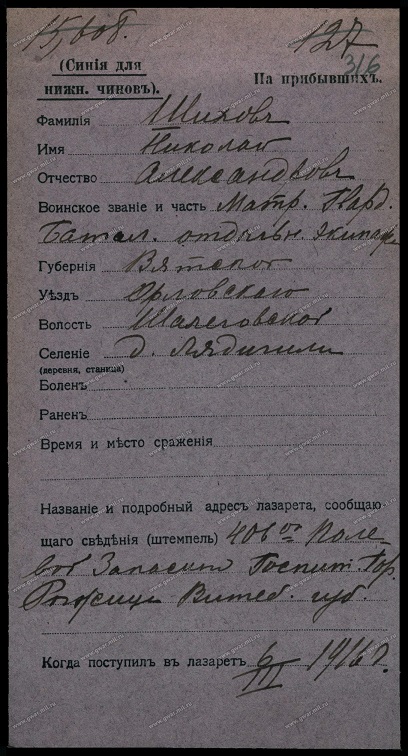 15, вов.
127
316
(Синія для
нижн. чиновъ).
На прибывшихъ.
Фамилія Шиховъ
Имя Николай
Отчество Александровъ
Воинское званіе и часть Матр. Гвард.
Батал. отдѣльн. экипажа
Губернія Вятской
Уѣздъ Орловскаго
Волость Шалеговской
Селеніе д.
(деревня, станица)
Боленъ
Раненъ
Время и мѣсто сраженія
Названіе и подробный адресъ лазарета, сообщаю-
щаго свѣдѣнія (штемпель) 406го Поле-
вой Запасный Госпит. Гор.
Рѣжица Витеб. губ.
Когда поступилъ въ лазаретъ 6/III 1916 г.